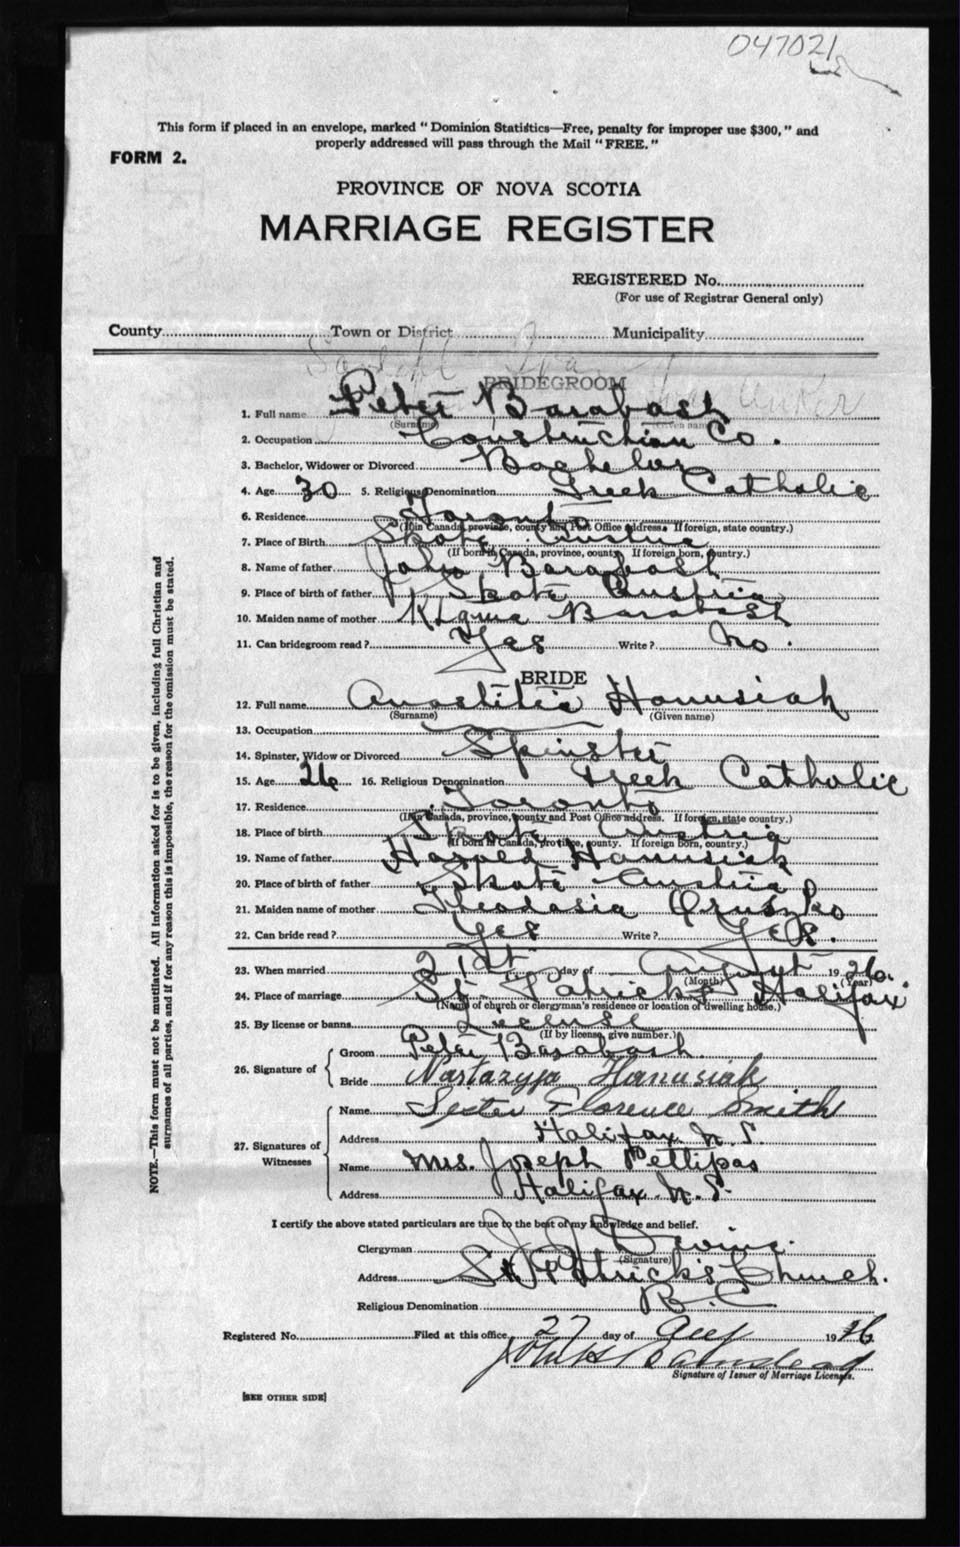 047021
This form if placed in an envelope, marked "Dominion Statistics—Free, penalty for improper use $300," and
properly addressed will pass through the Mail "FREE."
FORM 2.
PROVINCE OF NOVA SCOTIA
MARRIAGE REGISTER
REGISTERED No.
(For use of Registrar General only)
County Town or District Municipality
BRIDEGROOM
1. Full name Peter Barabash
(Surname) (Given name)
2. Occupation Construction Co.
3. Bachelor, Widower or Divorced Bachelor
4. Age 30 5. Religious Denomination Greek Catholic
6. Residence Toronto
(If in Canada, province, county and Post Office address. If foreign, state country.)
7. Place of Birth Skate Austria
(If born in Canada, province, county. If foreign born, country.)
8. Name of father John Barabash
9. Place of birth of father Skate Austria
10. Maiden name of mother Barabash
11. Can bridegroom read? Yes Write? No.
BRIDE
12. Full name Anastitia Hanusiak
(Surname) (Given name)
13. Occupation
14. Spinster, Widow or Divorced Spinster
15. Age 26 16. Religious Denomination Greek Catholic
17. Residence Toronto
(If in Canada, province, county and Post Office address. If foreign, state country.)
18. Place of birth Skate Austria
(If born in Canada, province, county. If foreign born, country.)
19. Name of father Harold Hanusiak
20. Place of birth of father Skate Austria
21. Maiden name of mother Theodasia Oruszko
22. Can bride read? Yes Write? Yes.
23. When married 21st day of August 1926.
(Month) (Year)
24. Place of marriage St. Patrick's Halifax
(Name of church or clergyman's residence or location of dwelling house.)
25. By license or banns License
(If by license, give number.)
26. Signature of
Groom Peter Barabash.
Bride Nastazyja Hanusiak
27. Signatures of Witnesses
Name Sister Florence Smith
Address Halifax N.S.
Name Mrs. Joseph Pettipas
Address Halifax N.S.
I certify the above stated particulars are true to the best of my knowledge and belief.
Clergyman Devine.
(Signature)
Address St Patrick's Church.
Religious Denomination R.C.
Registered No. Filed at this office 27 day of Aug 1926
John
Signature of Issuer of Marriage Licenses.
[SEE OTHER SIDE]
NOTE.—This form must not be mutilated. All information asked for is to be given, including full Christian and
surnames of all parties, and if for any reason this is impossible, the reason for the omission must be stated.